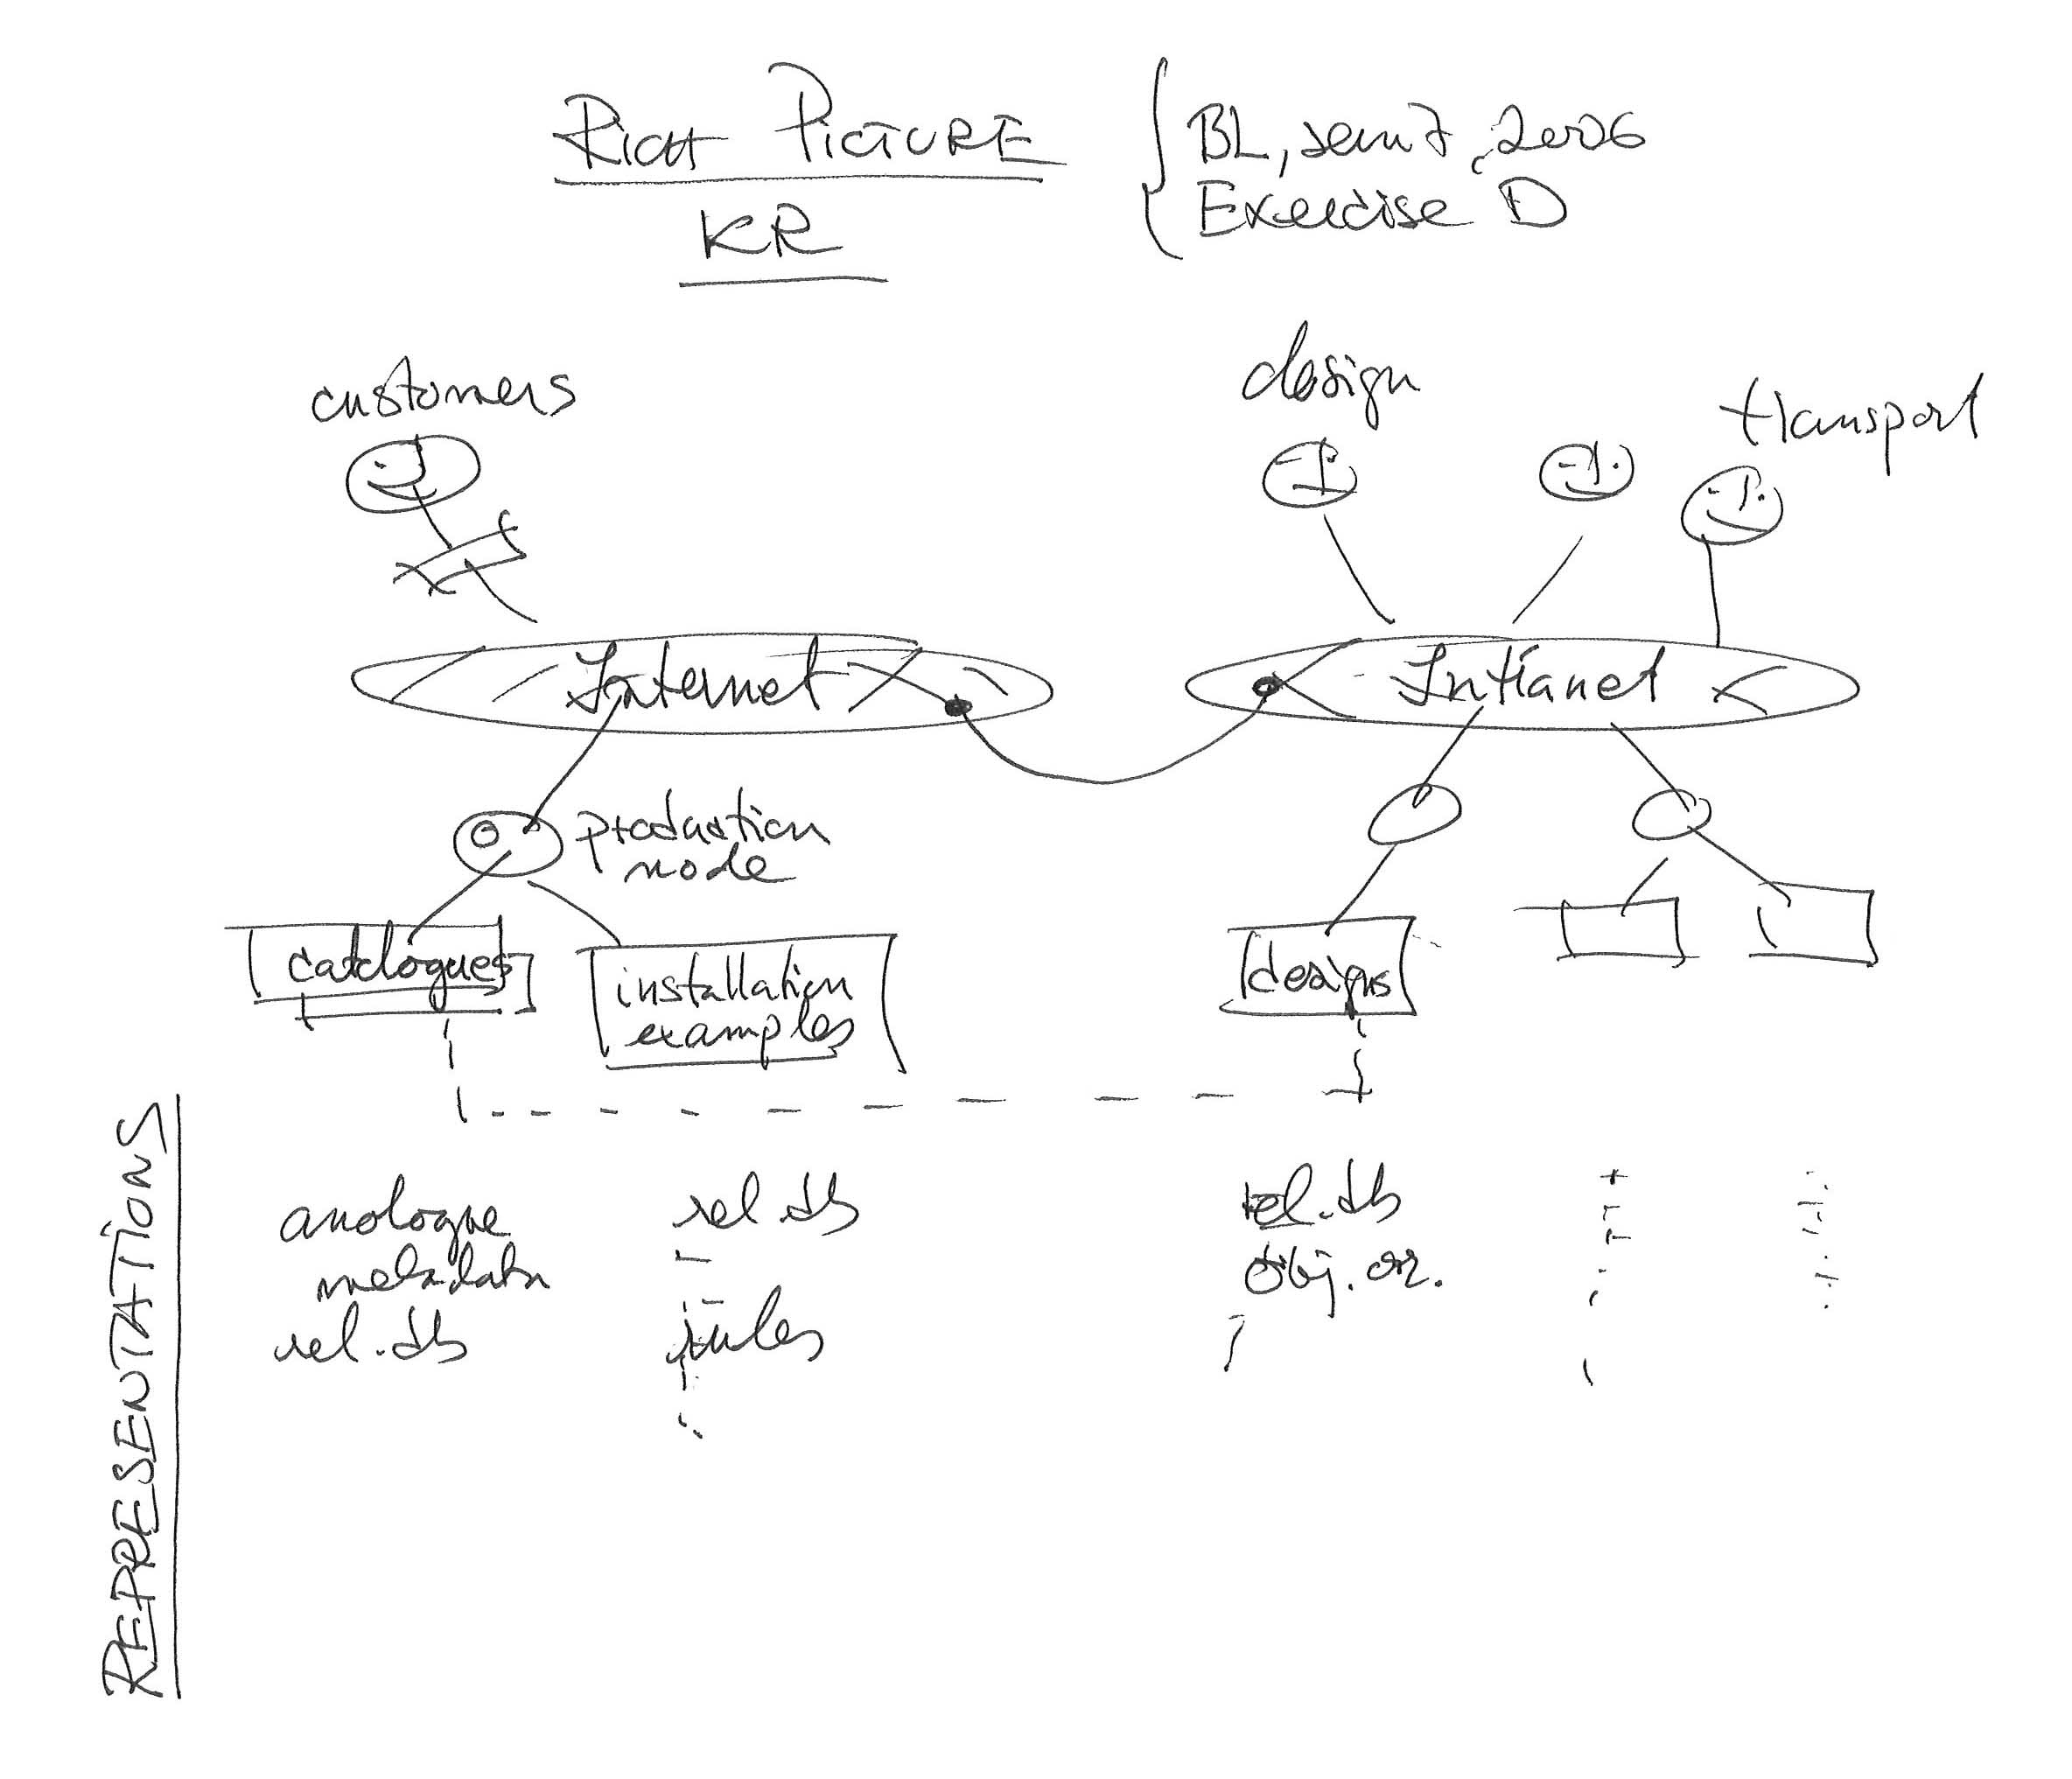 RICH PICTURE
KR
BL, sem 7, 2006
Exercise D
customers
design
transport
Internet
Intranet
production
node
catalogues
installation
examples
designs
REPRESENTATIONS
anologue
metadata
rel.db
rel.db
rules
rel.db
obj.or.